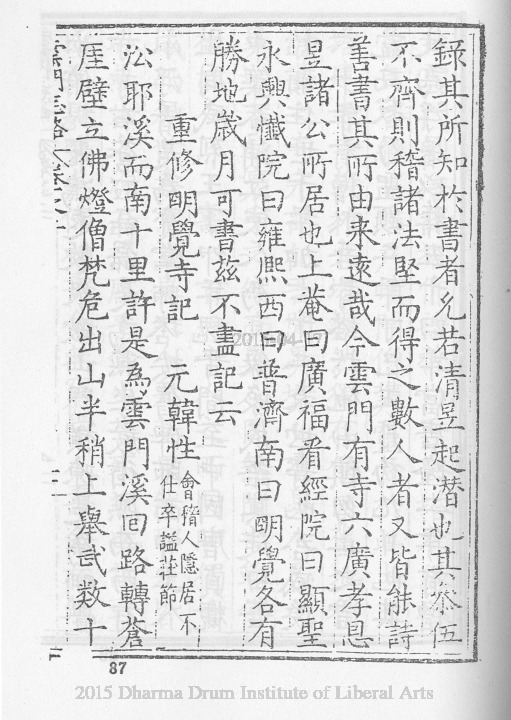 錄其所知於書者允若清昱起潛也其叅伍
不齊則稽諸法堅而得之數人者又皆能詩
善書其所由来遠哉今雲門有寺六廣孝息
昱諸公所居也上菴曰廣福看經院曰顯聖
永興懺院曰雍熙西曰普濟南曰明覺各有
勝地歲月可書兹不盡記云
重修明覺寺記 元韓性 會稽人隱居不仕卒謚莊節
㳂耶溪而南十里許是為雲門溪回路轉蒼
崖壁立佛燈僧梵危出山半稍上舉武数十
雲門志略 卷之十
二
87
2015 Dharma Drum Institute of Liberal Arts